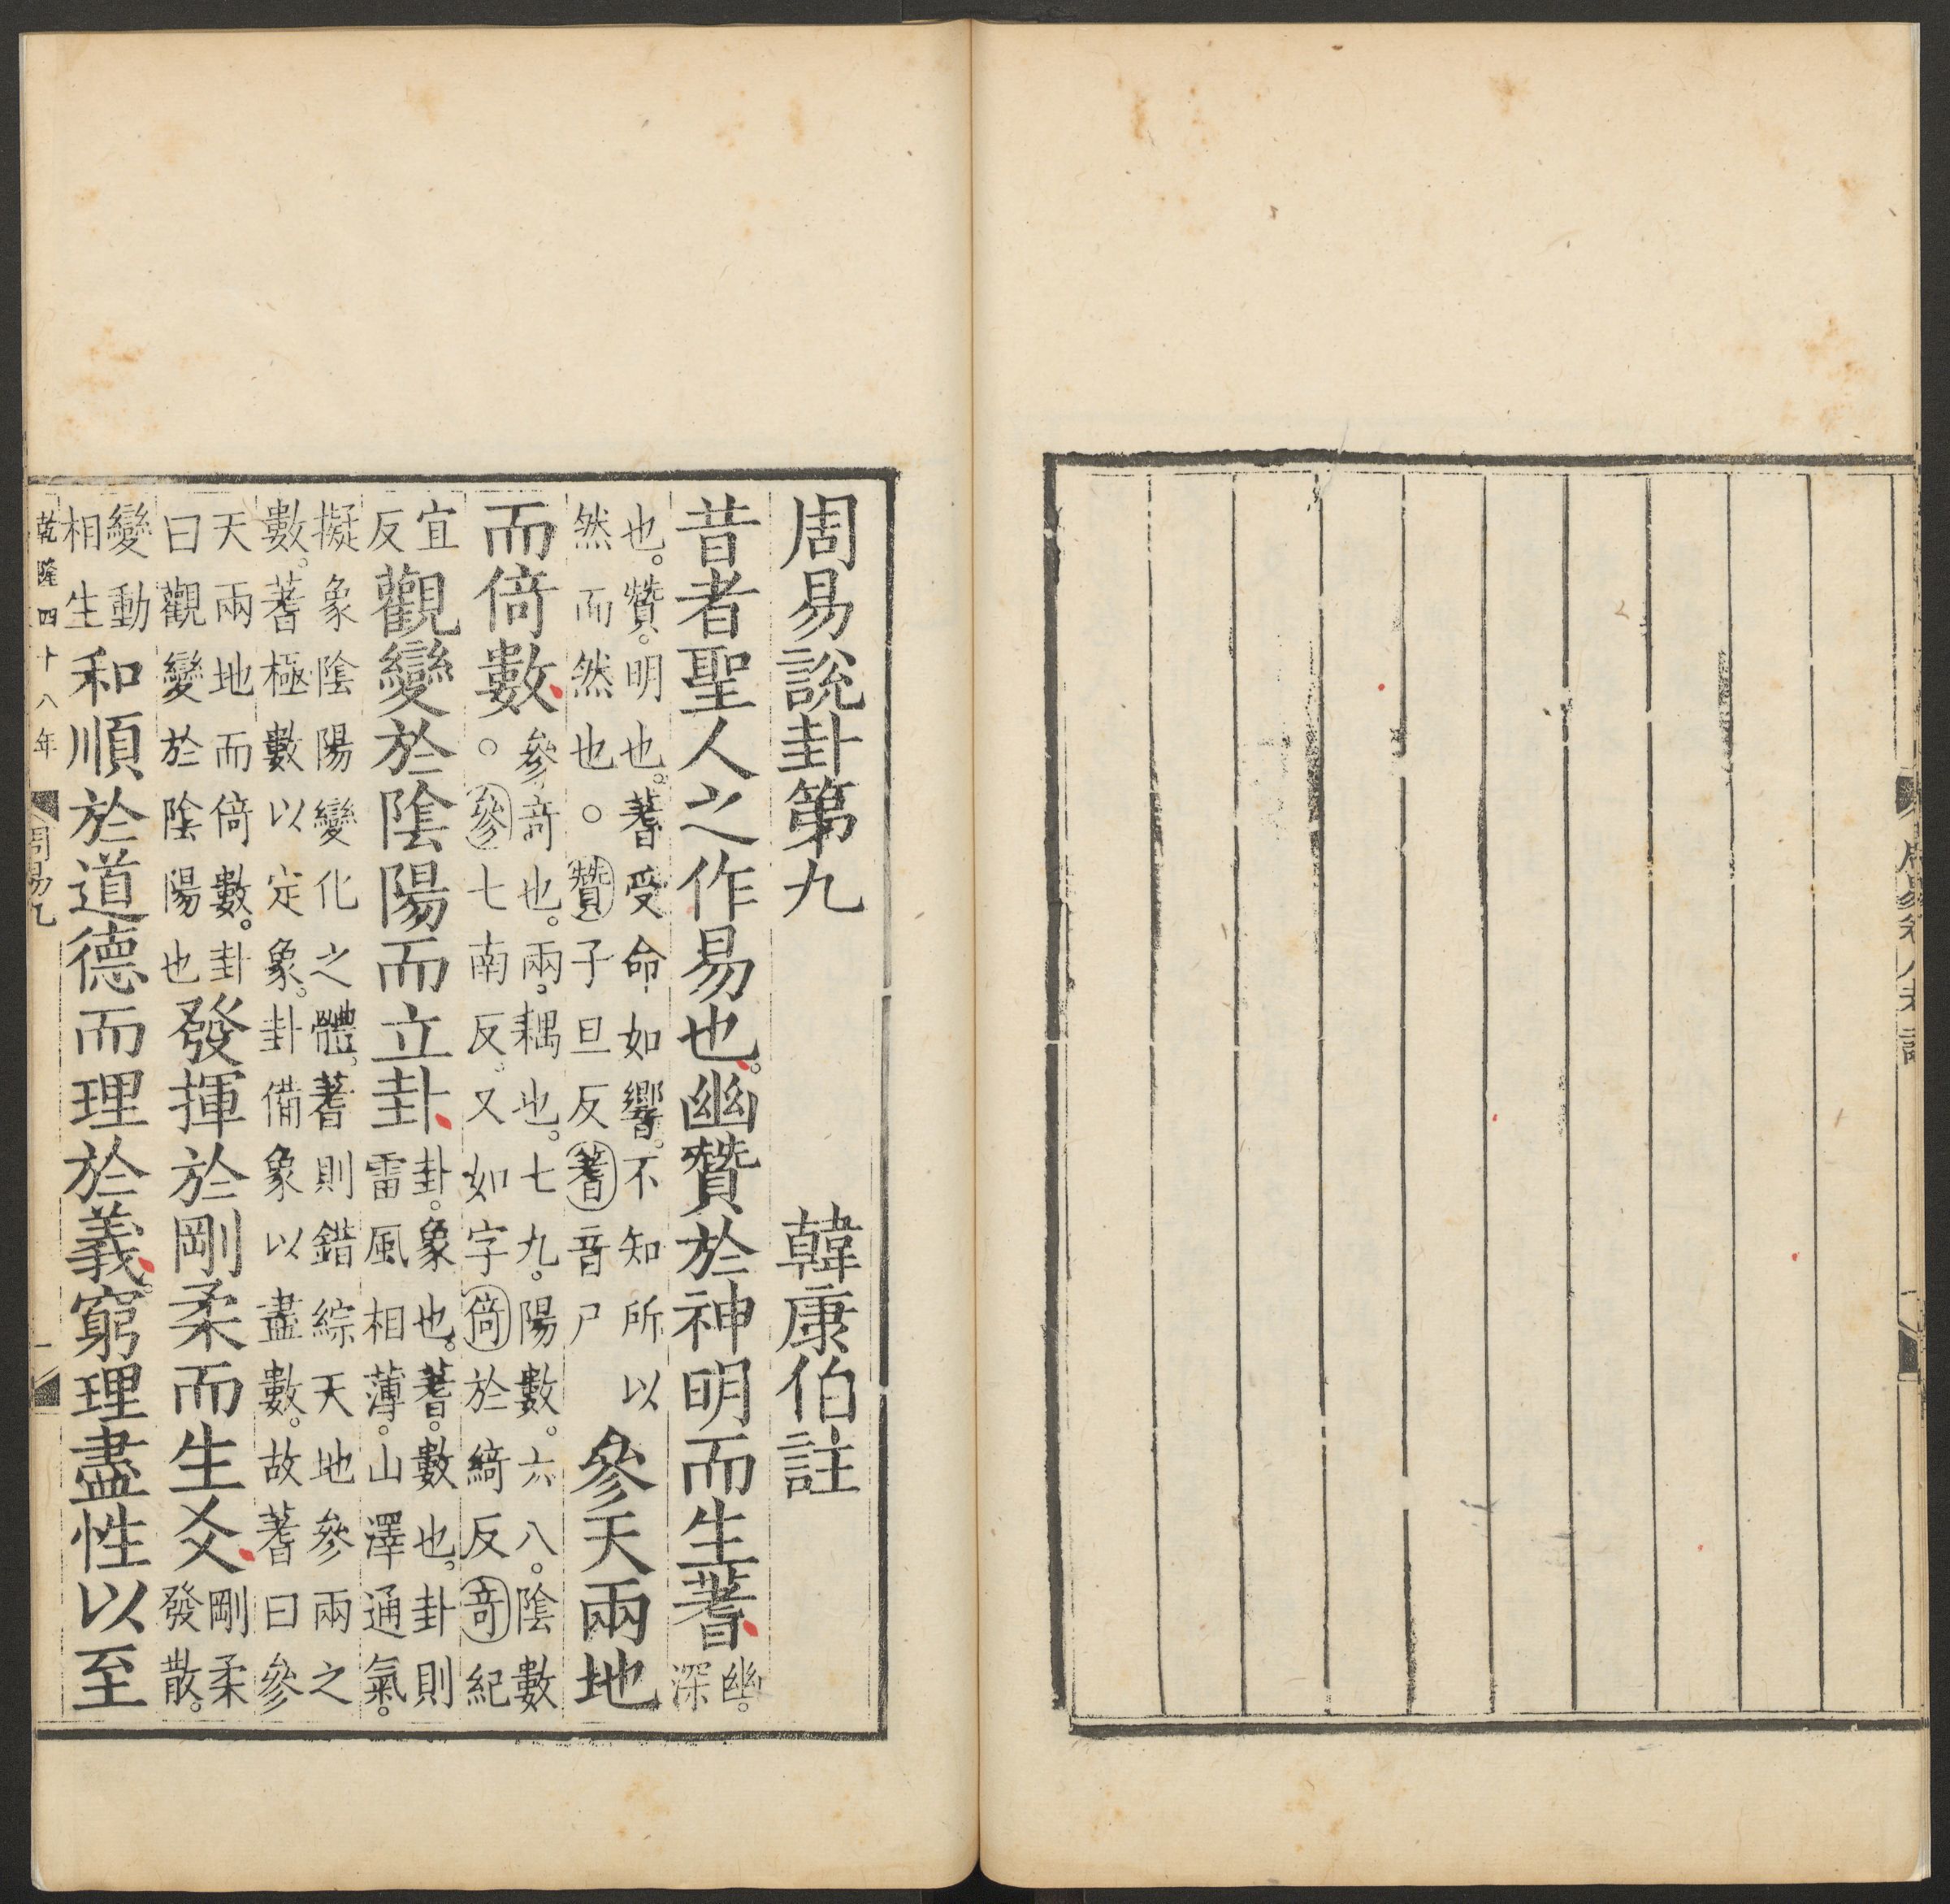 周易説卦第九　韓康伯註
昔者聖人之作易也。幽贊於神明而生蓍幽。深
也。贊。明也。蓍受命如響。不知所以
然而然也。○贊子旦反蓍音尸參天兩地
而倚數參奇也。兩。耦也。七九。陽數。六八。陰數
○參七南反。又如字倚於綺反奇紀
宜
反觀變於陰陽而立卦卦。象也。蓍。數也。卦則
雷風相薄。山澤通氣。
擬象陰陽變化之體。蓍則錯綜天地參兩之
數。蓍極數以定象。卦備象以盡數。故蓍曰參
天兩地而倚數。卦
曰觀變於陰陽也發揮於剛柔而生爻剛柔
發散。
變動
相生和順於道德而理於義。窮理盡性以至
乾隆四十八年
周易九
一